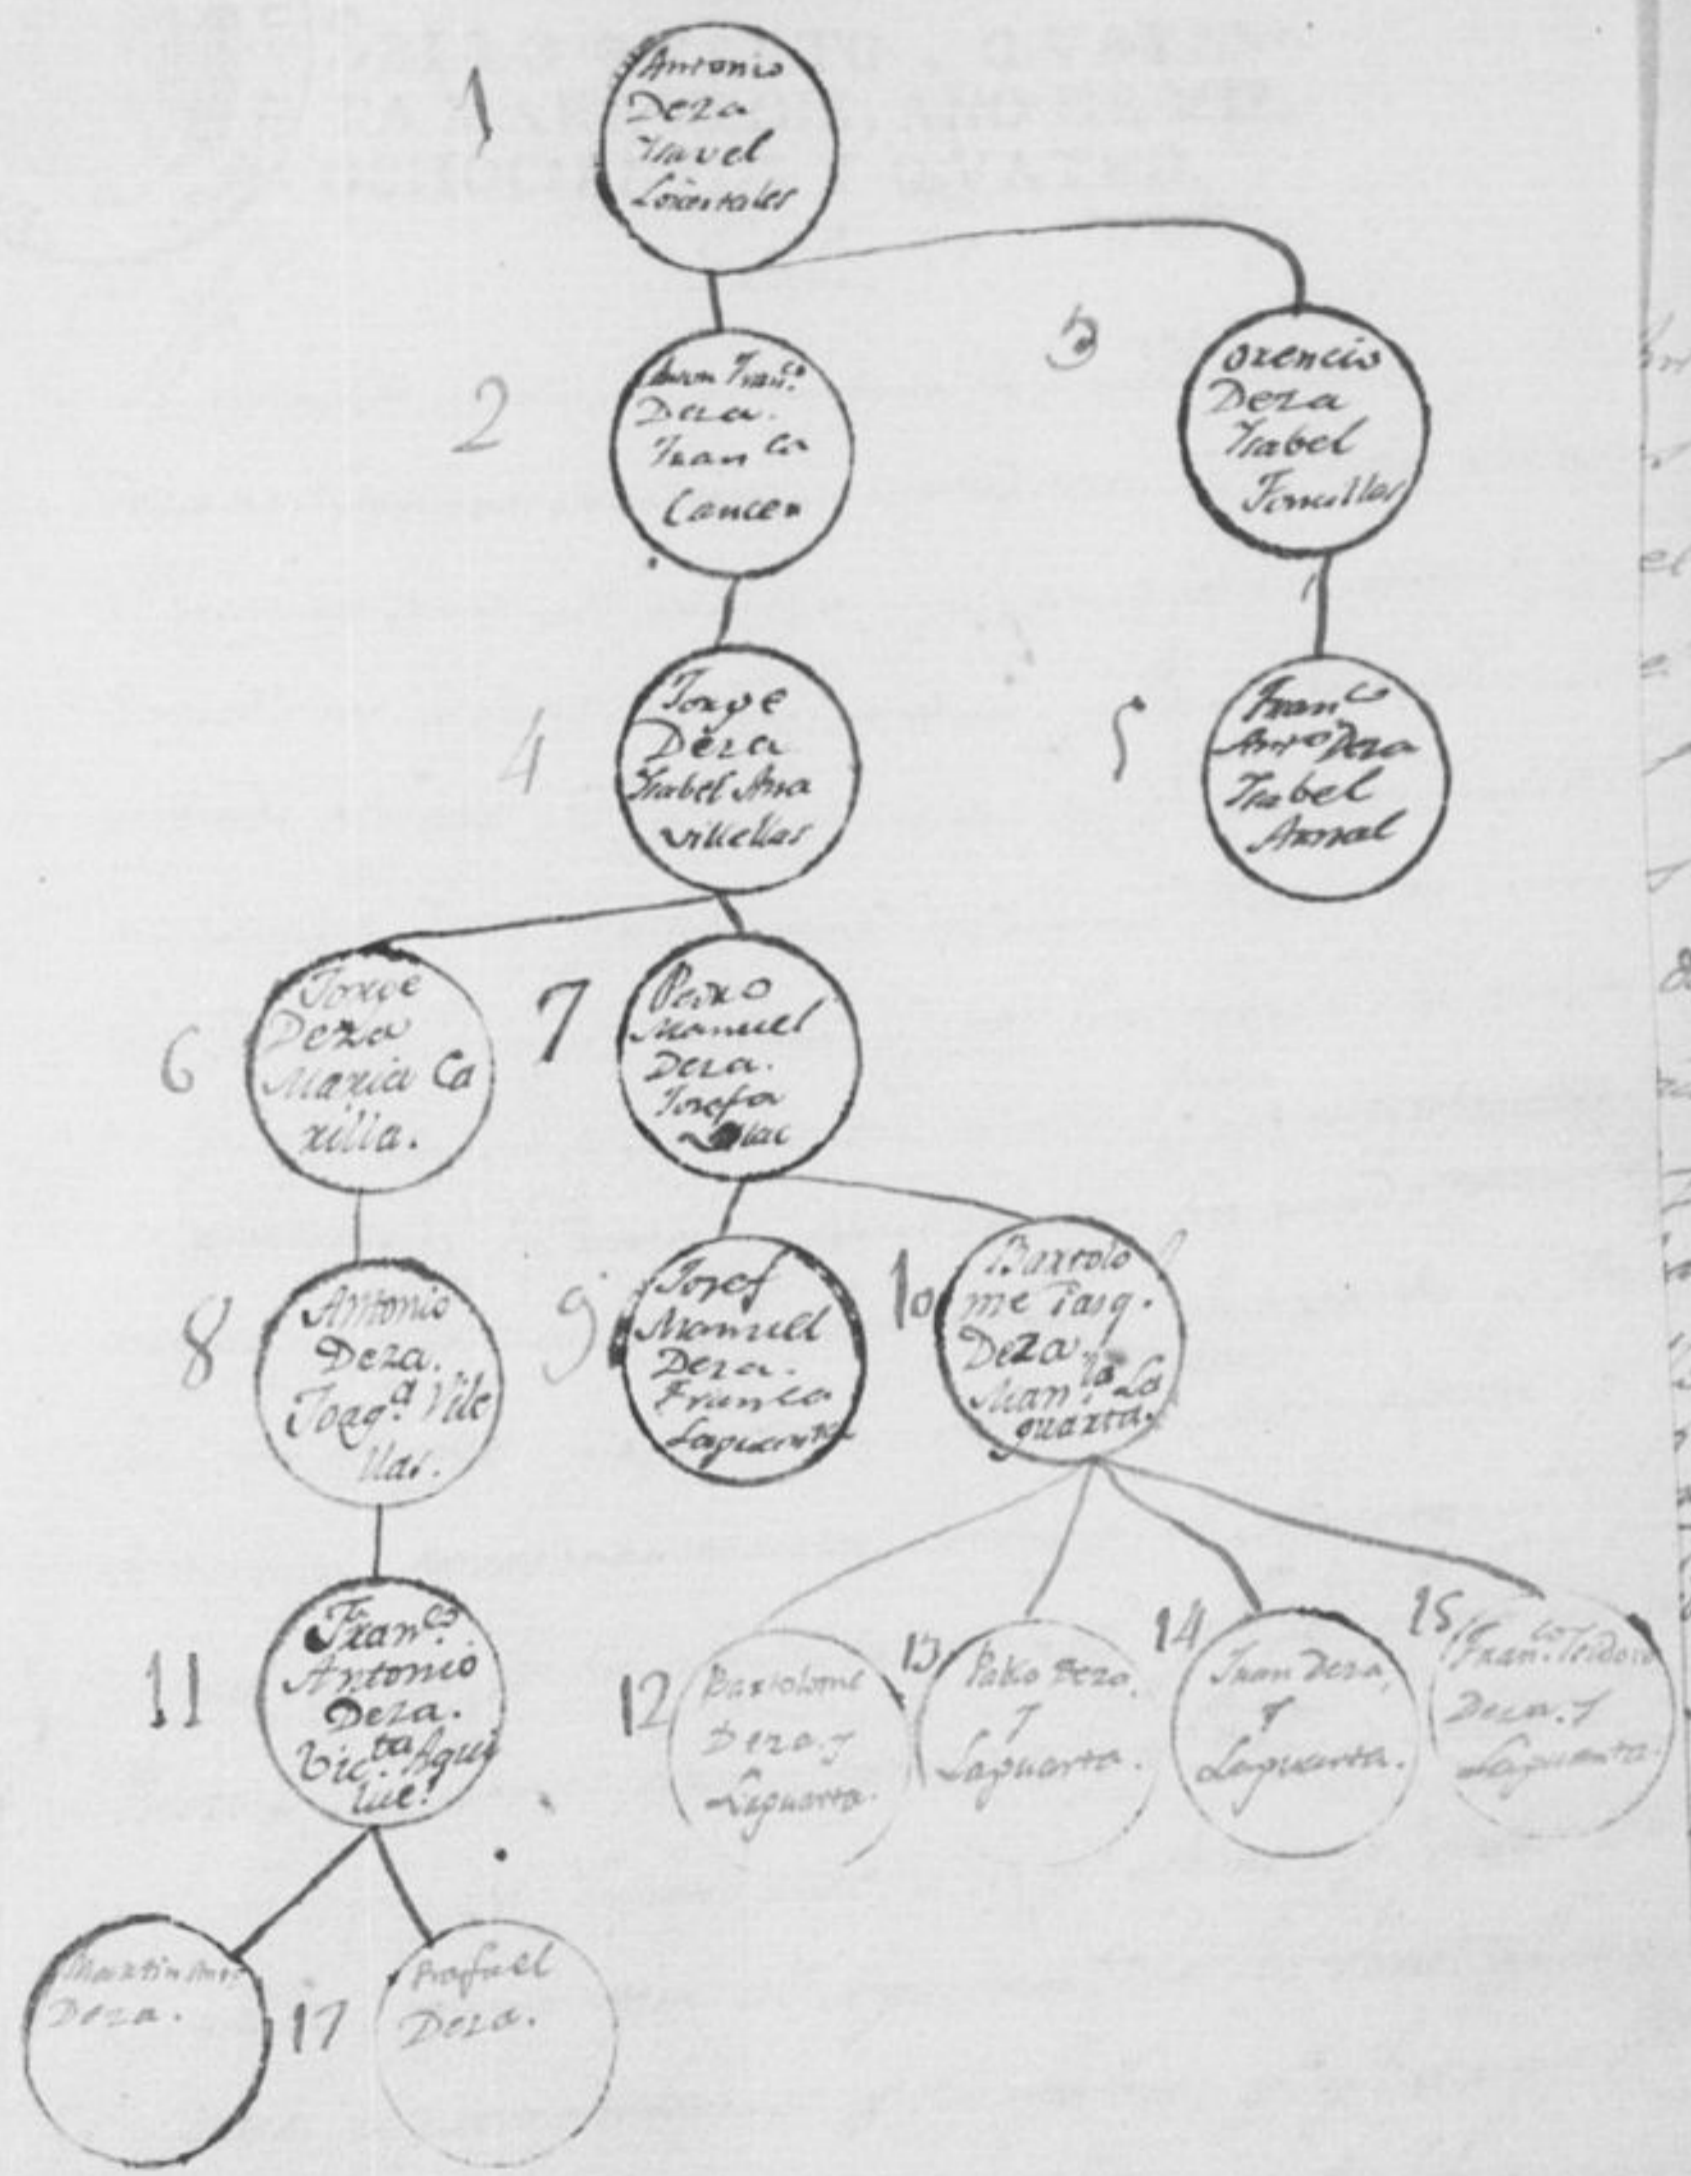 1
Antonio
Deza
Ysavel
2
Fran.co
Deza.
Fran ca
Cancer
3
Orencio
Deza
Ysabel
Foncillas
4
Jorge
Deza
Ysabel Ana
villellas
5
Fran co
Anto Deza
Ysabel
Arnal
6
Jorge
Deza
Maria Ca
rilla.
7
Pedro
Manuel
Deza.
Josefa
8
Antonio
Deza.
Joaq.a Vile
llas.
9
Josef
Manuel
Deza.
Fran ca
Lapuerta
10
Bartolo
me Pasq.
Deza.
Man.la La
puerta.
11
Fran.co
Antonio
Deza.
Vic.ta Agui
lue.
12
Bartolome
Deza y
Lapuerta.
13
Pablo Deza.
y
Lapuerta.
14
Juan Deza,
y
Lapuerta.
15
Fran.co Teodoro
Deza. y
Lapuerta.
Martin Ant.o
Deza.
17
Rafael
Deza.